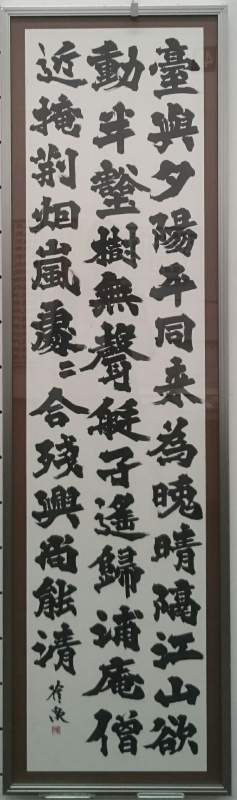 臺與夕陽平同来為晚晴隔江山欲
動半壑樹無聲艇子遙歸浦庵僧
近掩荊烟嵐處〻合残興尚能清